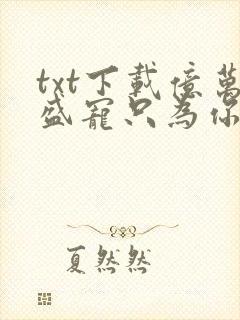 txt下載億萬
盛寵只為你
夏然然